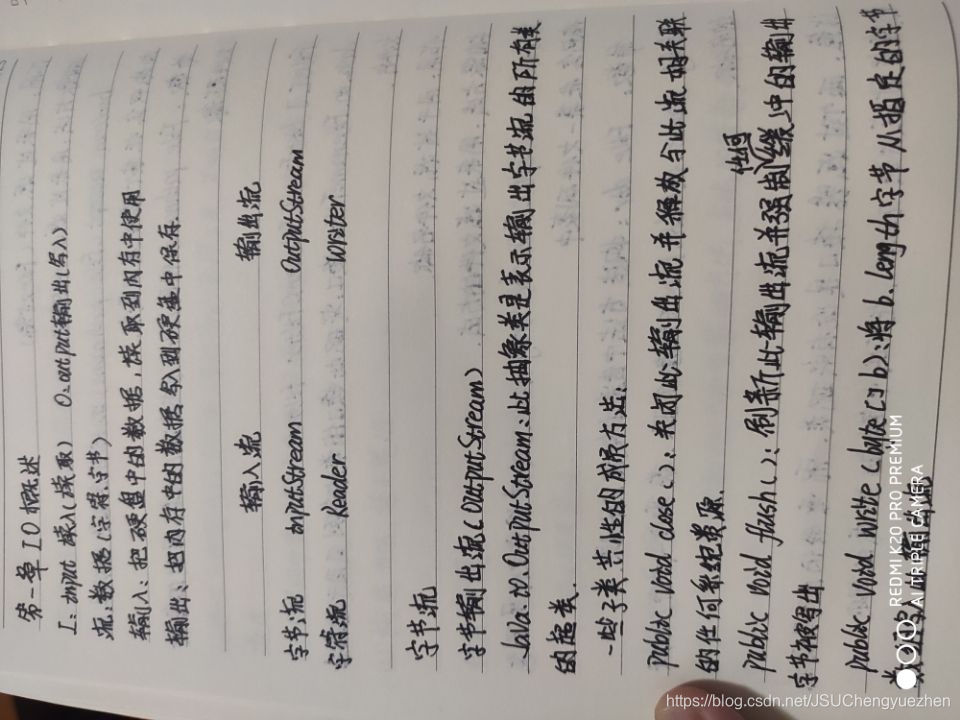 第一章 IO概述
I: input 输入(读取) O: output 输出(写入)
流: 数据(字符, 字节)
输入: 把硬盘中的数据, 读取到内存中使用
输出: 把内存中的数据 写入到硬盘中保存
输入流 输出流
字节流 InputStream OutputStream
字符流 Reader Writer
字节流
字节输出流(OutputStream)
java.io.OutputStream: 此抽象类是表示输出字节流的所有类
的超类.
一些子类共性的成员方法:
public void close(): 关闭此输出流并释放与此流相关联
的任何系统资源.
public void flush(): 刷新此输出流并强制任何缓冲的输出
字节被写出
public void write(byte[] b): 将 b.length字节从指定的字节
REDMI K20 PRO PREMIUM
AI TRIPLE CAMERA
https://blog.csdn.net/JSUChengyuezhen